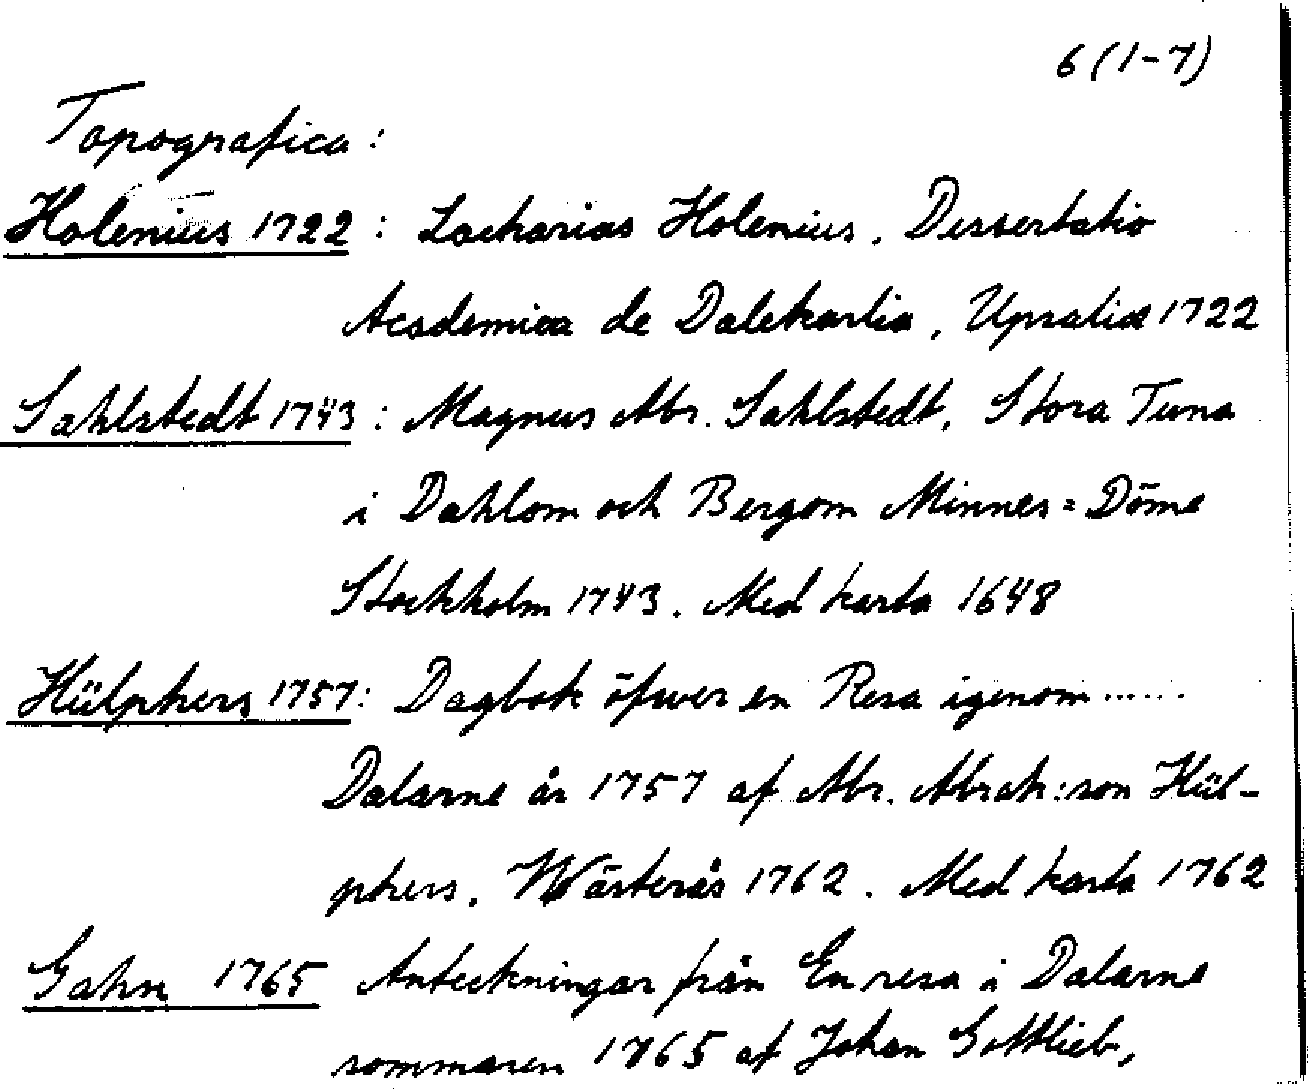 6 (1-7)
Topografica:
Holenius 1722: Zacharias Holenius. Dissertatio
Academica de Dalekarlia, Upsaliæ 1722
Sahlstedt 1743: Magnus Abr. Sahlstedt, Stora Tuna
i Dahlom och Bergom Minnes=Döme
Stockholm 1743. Med karta 1648
Hülphers 1757: Dagbok öfwer en Resa igenom......
Dalarne år 1757 af Abr. Abrah:son Hül-
phers. Wästerås 1762. Med karta 1762
Gahn 1765 Anteckningar från En resa i Dalarne
sommaren 1765 af Johan Gottlieb,